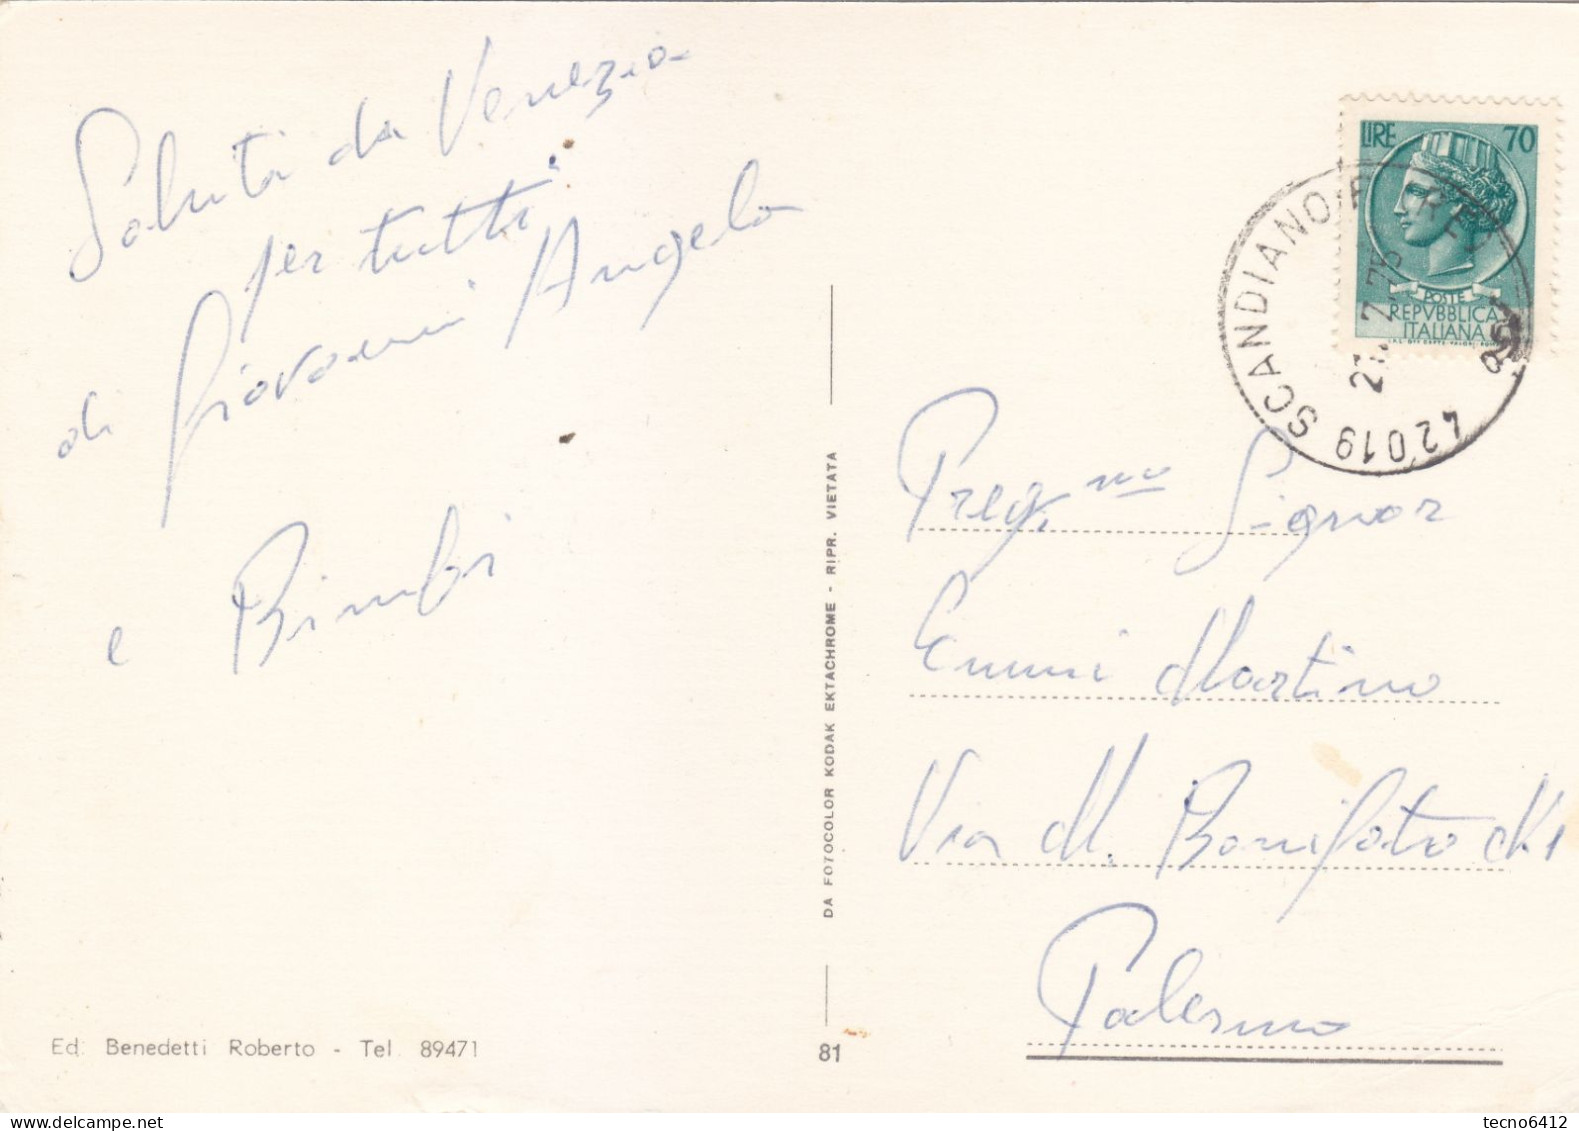 Saluti da Venezia
per tutti
di Giovanni Angela
e Bimbi
Ed. Benedetti Roberto - Tel. 89471
DA FOTOCOLOR KODAK EKTACHROME - RIPR. VIETATA
81
LIRE 70
POSTE
REPVBBLICA
ITALIANA
42019 SCANDIANO
Preg.mo Signor
Emmi Martino
Via M. Bonifato
Palermo
tecno6412